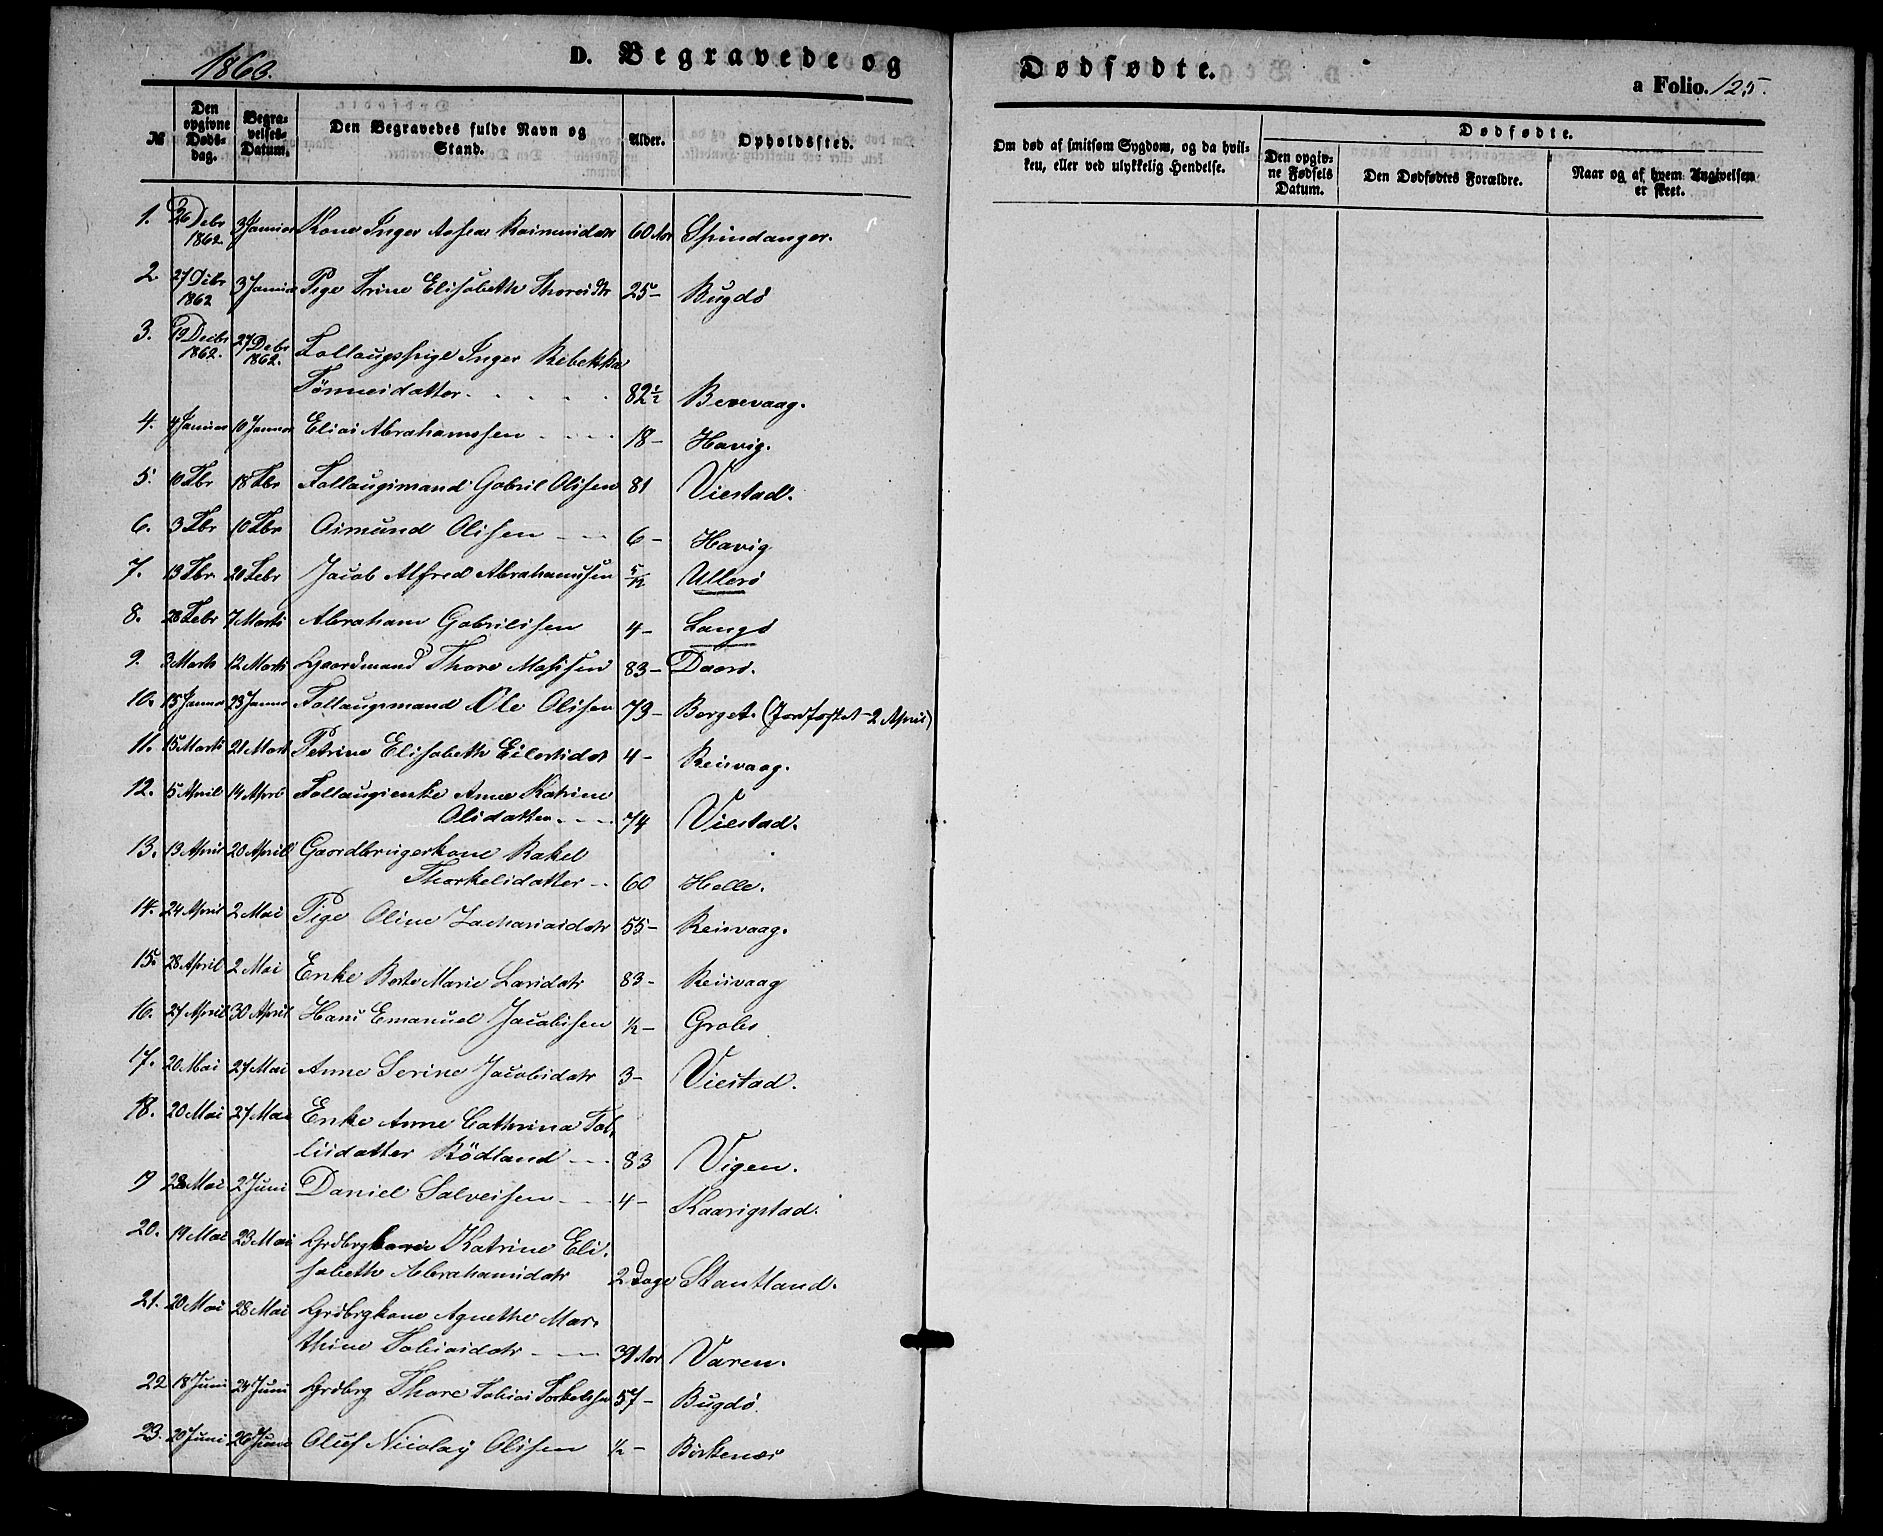 1863.
D. Begravede og
Dødfødte.
a Folio. 125.
№
Den opgivne Døds-dag.
Begra-velses-Datum.
Den Begravedes fulde Navn og Stand.
Alder.
Opholdssted.
Om død af smitsom Sygdom, og da hvil-ken, eller ved ulykkelig Hendelse.
Dødfødte.
Den opgiv-ne Fødsels Datum.
Den Dødfødtes Forældre.
Naar og af hvem Angivelsen er skeet.
1. 26 Debr 1862. 3 Januar Kone Inger Aasea Reimersdatr 60 Aar Spindanger.
2. 27 Debr 1862 3 Januar Pige Trine Elisabeth Thoresdtr 25 - Bugdø
3. 19 Decbr 1862. 27 Debr 1862. Follaugspige Inger Rebekka
Tønnesdatter 82 1/2 Berevaag.
4. 4 Januar 10 Januar Elias Abrahamsen 18 - Havig.
5. 10 Fbr 18 Fbr Follaugsmand Gabril Olissen 81 Viestad.
6. 3 Fbr 10 Fbr Osmund Olissen 6 - Havig
7. 13 Fbr 20 Febr Jacob Alfred Abrahamssen 5/12 Ullerø
8. 28 Febr 7 Marts Abraham Gabrielssen 4 - Langø
9. 3 Marts 12 Marts Gaardmand Thore Mossisen 83 - Daarø.
10. 15 Januar 23 Januar Follaugsmand Ole Olissen 73 - Berget. (Jordfæstet 2 April)
11. 15 Marts 21 Mart Petrine Elisabeth Eilertsdat 4 - Reisvaag.
12. 5 April 14 April Follaugsenke Anna Katrine
Olsdatter 74 Viestad.
13. 13 April 20 April Gaardbrugerkone Rakel
Thorkelsdatter 60 Helle.
14. 24 April 2 Mai Pige Oline Zachariasdatr 55 - Reisvaag.
15. 28 April 2 Mai Enke Berte Marie Larsdatr 83 - Reisvaag
16. 27 April 30 April Hans Emanuel Jacobsen 1/2 - Grobs
17. 20 Mai 27 Mai Anne Serine Jacobsdatr 3 - Viestad.
18. 20 Mai 27 Mai Enke Anne Cathrina Tol-
lisdatter Rödland 83 Vigen.
19 28 Mai 2 Juni Daniel Salvesen 4 - Kaarigstad.
20. 19 Mai 23 Mai Katrine Eli-
sabeth Abrahamsdatr 2 Dage Stautland.
21. 20 Mai 28 Mai Grdbrgkone Agnethe Mar-
thine Tobiasdatr 39 Aar Varen.
22 18 Juni 24 Juni Grdbrg Thore Tobias Torkelsen 57 - Bugdø.
23. 20 Juni 26 Juni Oluf Nicolay Olssen 1/2 - Birkenæs